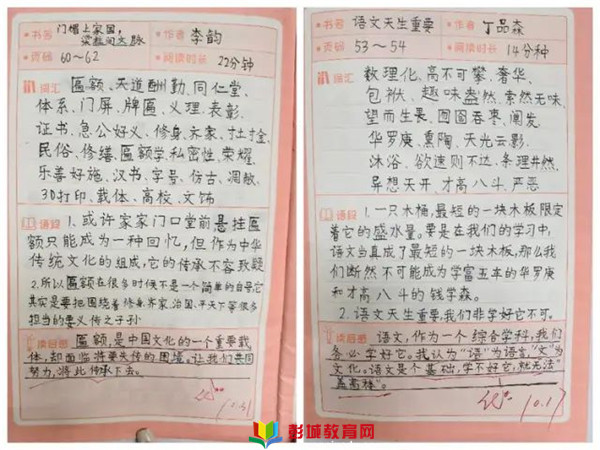 书名 门楣上家国,
梁载问文脉
作者 李韵
页码 60~62
阅读时长 22分钟
词汇 匾额、天道酬勤、同仁堂、
体系、门屏、牌匾、义理、表彰、
证书、急公好义、修身、齐家、
民俗、修缮、匾额学、私密性、荣耀、
乐善好施、汉书、字号、仿古、凋敝、
3D打印、载体、高校、文饰
语段 1、或许家家门口堂前悬挂匾
额只能成为一种回忆,但作为中华
传统文化的组成,它的传承不容致疑
2.所以匾额在很多时候不是一个简单的自号它
其实是要把围绕着修身齐家、治国、平天下等很多
担当的要义传之子孙
读后感 匾额,是中国文化的一个重要载
体,却面临将要失传的困境。让我们共同
努力,将此传承下去。
书名 语文天生重要
作者 丁品森
页码 53~54
阅读时长 14分种
词汇 数理化、高不可攀、奢华、
包袱、趣味盎然、索然无味、
望而生畏、囫囵吞枣、阐发、
华罗庚、熏陶、天光云影、
沐浴、欲速则不达、条理井然、
异想天开、才高八斗、严苛
语段 1.一只木桶,最短的一块木板限定
着它的盛水量。要是在我们的学习中,
语文当真成了最短的一块木板,那么我
们断然不可能成为学富五车的华罗庚
和才高八斗的钱学森。
2.语文天生重要,我们非学好它不可。
读后感 语文,作为一个综合学科,我们
务必学好它。我认为“语”为语言,“文”为
文化。语文是个基础,学不好它,就无法“
盖高楼”。
10.17
彭城教育网